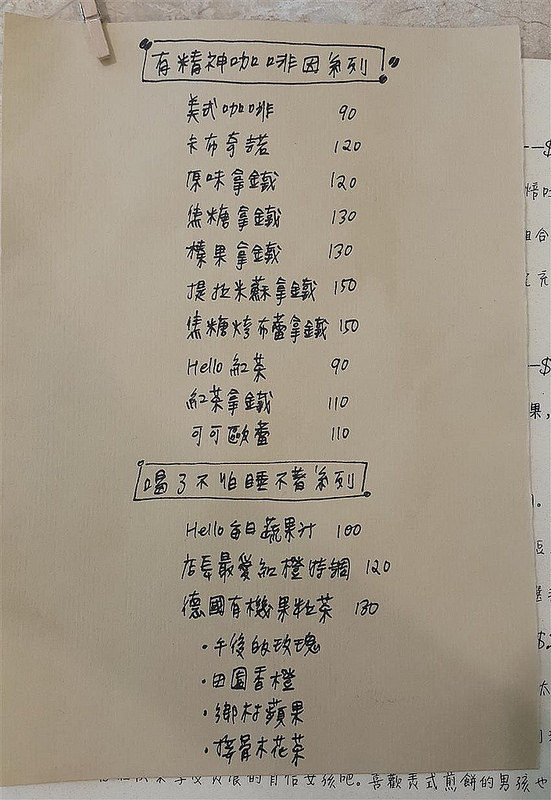 有精神咖啡因系列
美式咖啡 90
卡布奇諾 120
原味拿鐵 120
焦糖拿鐵 130
榛果拿鐵 130
提拉米蘇拿鐵 150
焦糖烤布蕾拿鐵 150
Hello 紅茶 90
紅茶拿鐵 110
可可歐蕾 110
喝了不怕睡不著系列
Hello 每日蔬果汁 100
店長最愛紅橙特調 120
德國有機果粒茶 130
・午後的玫瑰
・田園香橙
・鄉村蘋果
・接骨木花茶
的自信女孩吧。喜歡美式煎餅的男孩也